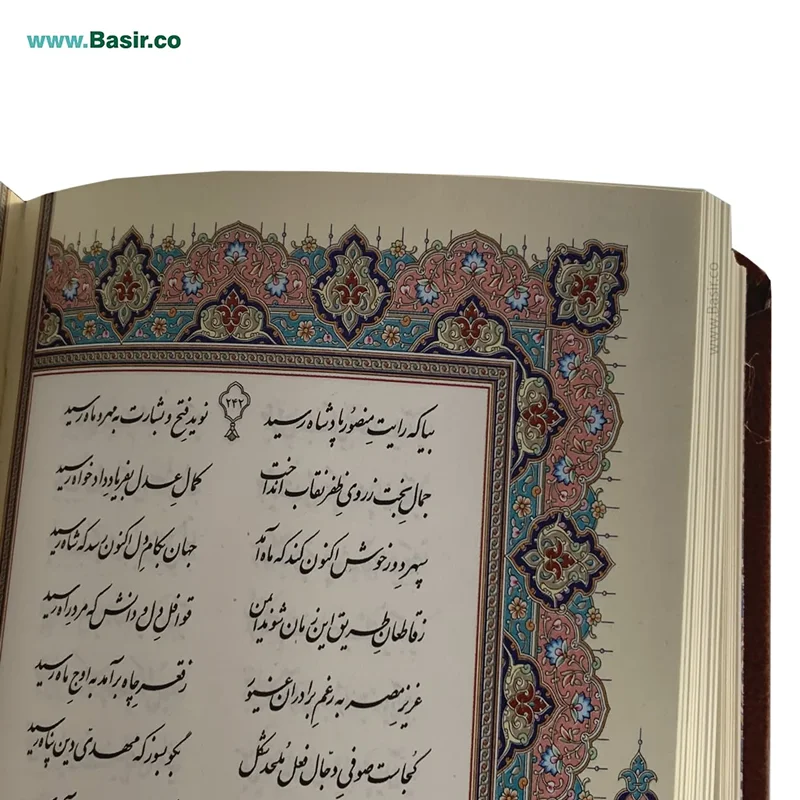 www.Basir.co
www.Basir.co
۲۴۲
بیا که رایت منصور پادشاه رسید نوید فتح و بشارت به مهر و ماه رسید
جمال بخت ز روی ظفر نقاب انداخت کمال عدل بفریاد دادخواه رسید
سپهر دور خوش اکنون کند که ماه آمد جهان بکام دل اکنون رسد که شاه رسید
ز قاطعان طریق این زمان شوند ایمن قوافل دل و دانش که مرد راه رسید
عزیز مصر به رغم برادران غیور ز قعر چاه برآمد به اوج ماه رسید
کجاست صوفی دجال فعل ملحد شکل بگو بسوز که مهدی دین پناه رسید